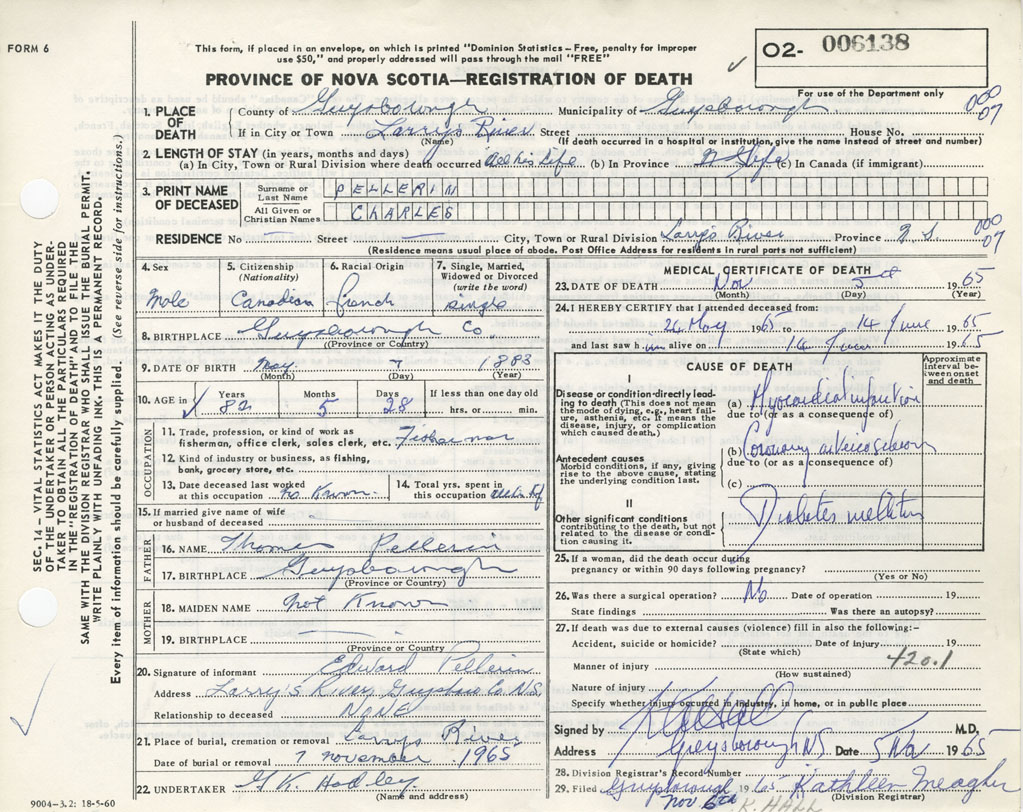 FORM 6
This form, if placed in an envelope, on which is printed "Dominion Statistics – Free, penalty for improper
use $50," and properly addressed will pass through the mail "FREE"
PROVINCE OF NOVA SCOTIA—REGISTRATION OF DEATH
O2- 006138
For use of the Department only
1. PLACE OF DEATH
County of Guysborough Municipality of Guysborough
000 07
If in City or Town Larrys River Street House No.
(Name) (If death occurred in a hospital or institution, give the name instead of street and number)
2. LENGTH OF STAY (in years, months and days)
(a) In City, Town or Rural Division where death occurred all his Life (b) In Province (c) In Canada (if immigrant)
3. PRINT NAME OF DECEASED
Surname or Last Name PELLERIN
All Given or Christian Names CHARLES
RESIDENCE No Street City, Town or Rural Division Larrys River Province N S
000 07
(Residence means usual place of abode. Post Office Address for residents in rural parts not sufficient)
4. Sex
Male
5. Citizenship (Nationality)
Canadian
6. Racial Origin
french
7. Single, Married, Widowed or Divorced (write the word)
single
8. BIRTHPLACE Guysborough Co
(Province or Country)
9. DATE OF BIRTH May 7 1883
(Month) (Day) (Year)
10. AGE in Years Months Days If less than one day old
82 5 28 hrs. or min.
OCCUPATION
11. Trade, profession, or kind of work as
fisherman, office clerk, sales clerk, etc. Fisherman
12. Kind of industry or business, as fishing,
bank, grocery store, etc.
13. Date deceased last worked
at this occupation no Known
14. Total yrs. spent in
this occupation
15. If married give name of wife
or husband of deceased
FATHER
16. NAME Thomas Pellerin
17. BIRTHPLACE Guysborough
(Province or Country)
MOTHER
18. MAIDEN NAME not Known
19. BIRTHPLACE
(Province or Country)
20. Signature of informant Edward Pellerin
Address Larry's River Guys Co N.S.
Relationship to deceased NONE
21. Place of burial, cremation or removal Larrys River
Date of burial or removal 7 november 1965
22. UNDERTAKER G. K. Hadley
(Name and address)
9004-3.2: 18-5-60
MEDICAL CERTIFICATE OF DEATH
23. DATE OF DEATH Nov 5 1965
(Month) (Day) (Year)
24. I HEREBY CERTIFY that I attended deceased from:
26 May 1965 to 14 June 1965
and last saw him alive on 14 June 1965
CAUSE OF DEATH
Approximate interval between onset and death
I
Disease or condition directly leading to death (This does not mean the mode of dying, e.g., heart failure, asthenia, etc. It means the disease, injury, or complication which caused death.)
(a) Myocardial infarction
due to (or as a consequence of)
Antecedent causes
Morbid conditions, if any, giving rise to the above cause, stating the underlying condition last.
(b) Coronary arteriosclerosis
due to (or as a consequence of)
(c)
II
Other significant conditions
contributing to the death, but not related to the disease or condition causing it.
Diabetes mellitus
25. If a woman, did the death occur during
pregnancy or within 90 days following pregnancy?
(Yes or No)
26. Was there a surgical operation? No Date of operation 19
State findings Was there an autopsy?
27. If death was due to external causes (violence) fill in also the following:–
Accident, suicide or homicide? Date of injury 19
(State which) 420.1
Manner of injury
(How sustained)
Nature of injury
Specify whether injury occurred in industry, in home, or in public place
Signed by M.D.
Address Guysborough NS Date 5 Nov 1965
28. Division Registrar's Record Number
29. Filed Guysborough 1965 Kathleen Meagher
Nov 6th (Division Registrar)
K. HALL
SEC. 14 – VITAL STATISTICS ACT MAKES IT THE DUTY
OF THE UNDERTAKER OR PERSON ACTING AS UNDER-
TAKER TO OBTAIN ALL THE PARTICULARS REQUIRED
IN THE "REGISTRATION OF DEATH" AND TO FILE THE
SAME WITH THE DIVISION REGISTRAR WHO SHALL ISSUE THE BURIAL PERMIT.
WRITE PLAINLY WITH UNFADING INK. THIS IS A PERMANENT RECORD.
Every item of information should be carefully supplied. (See reverse side for instructions.)